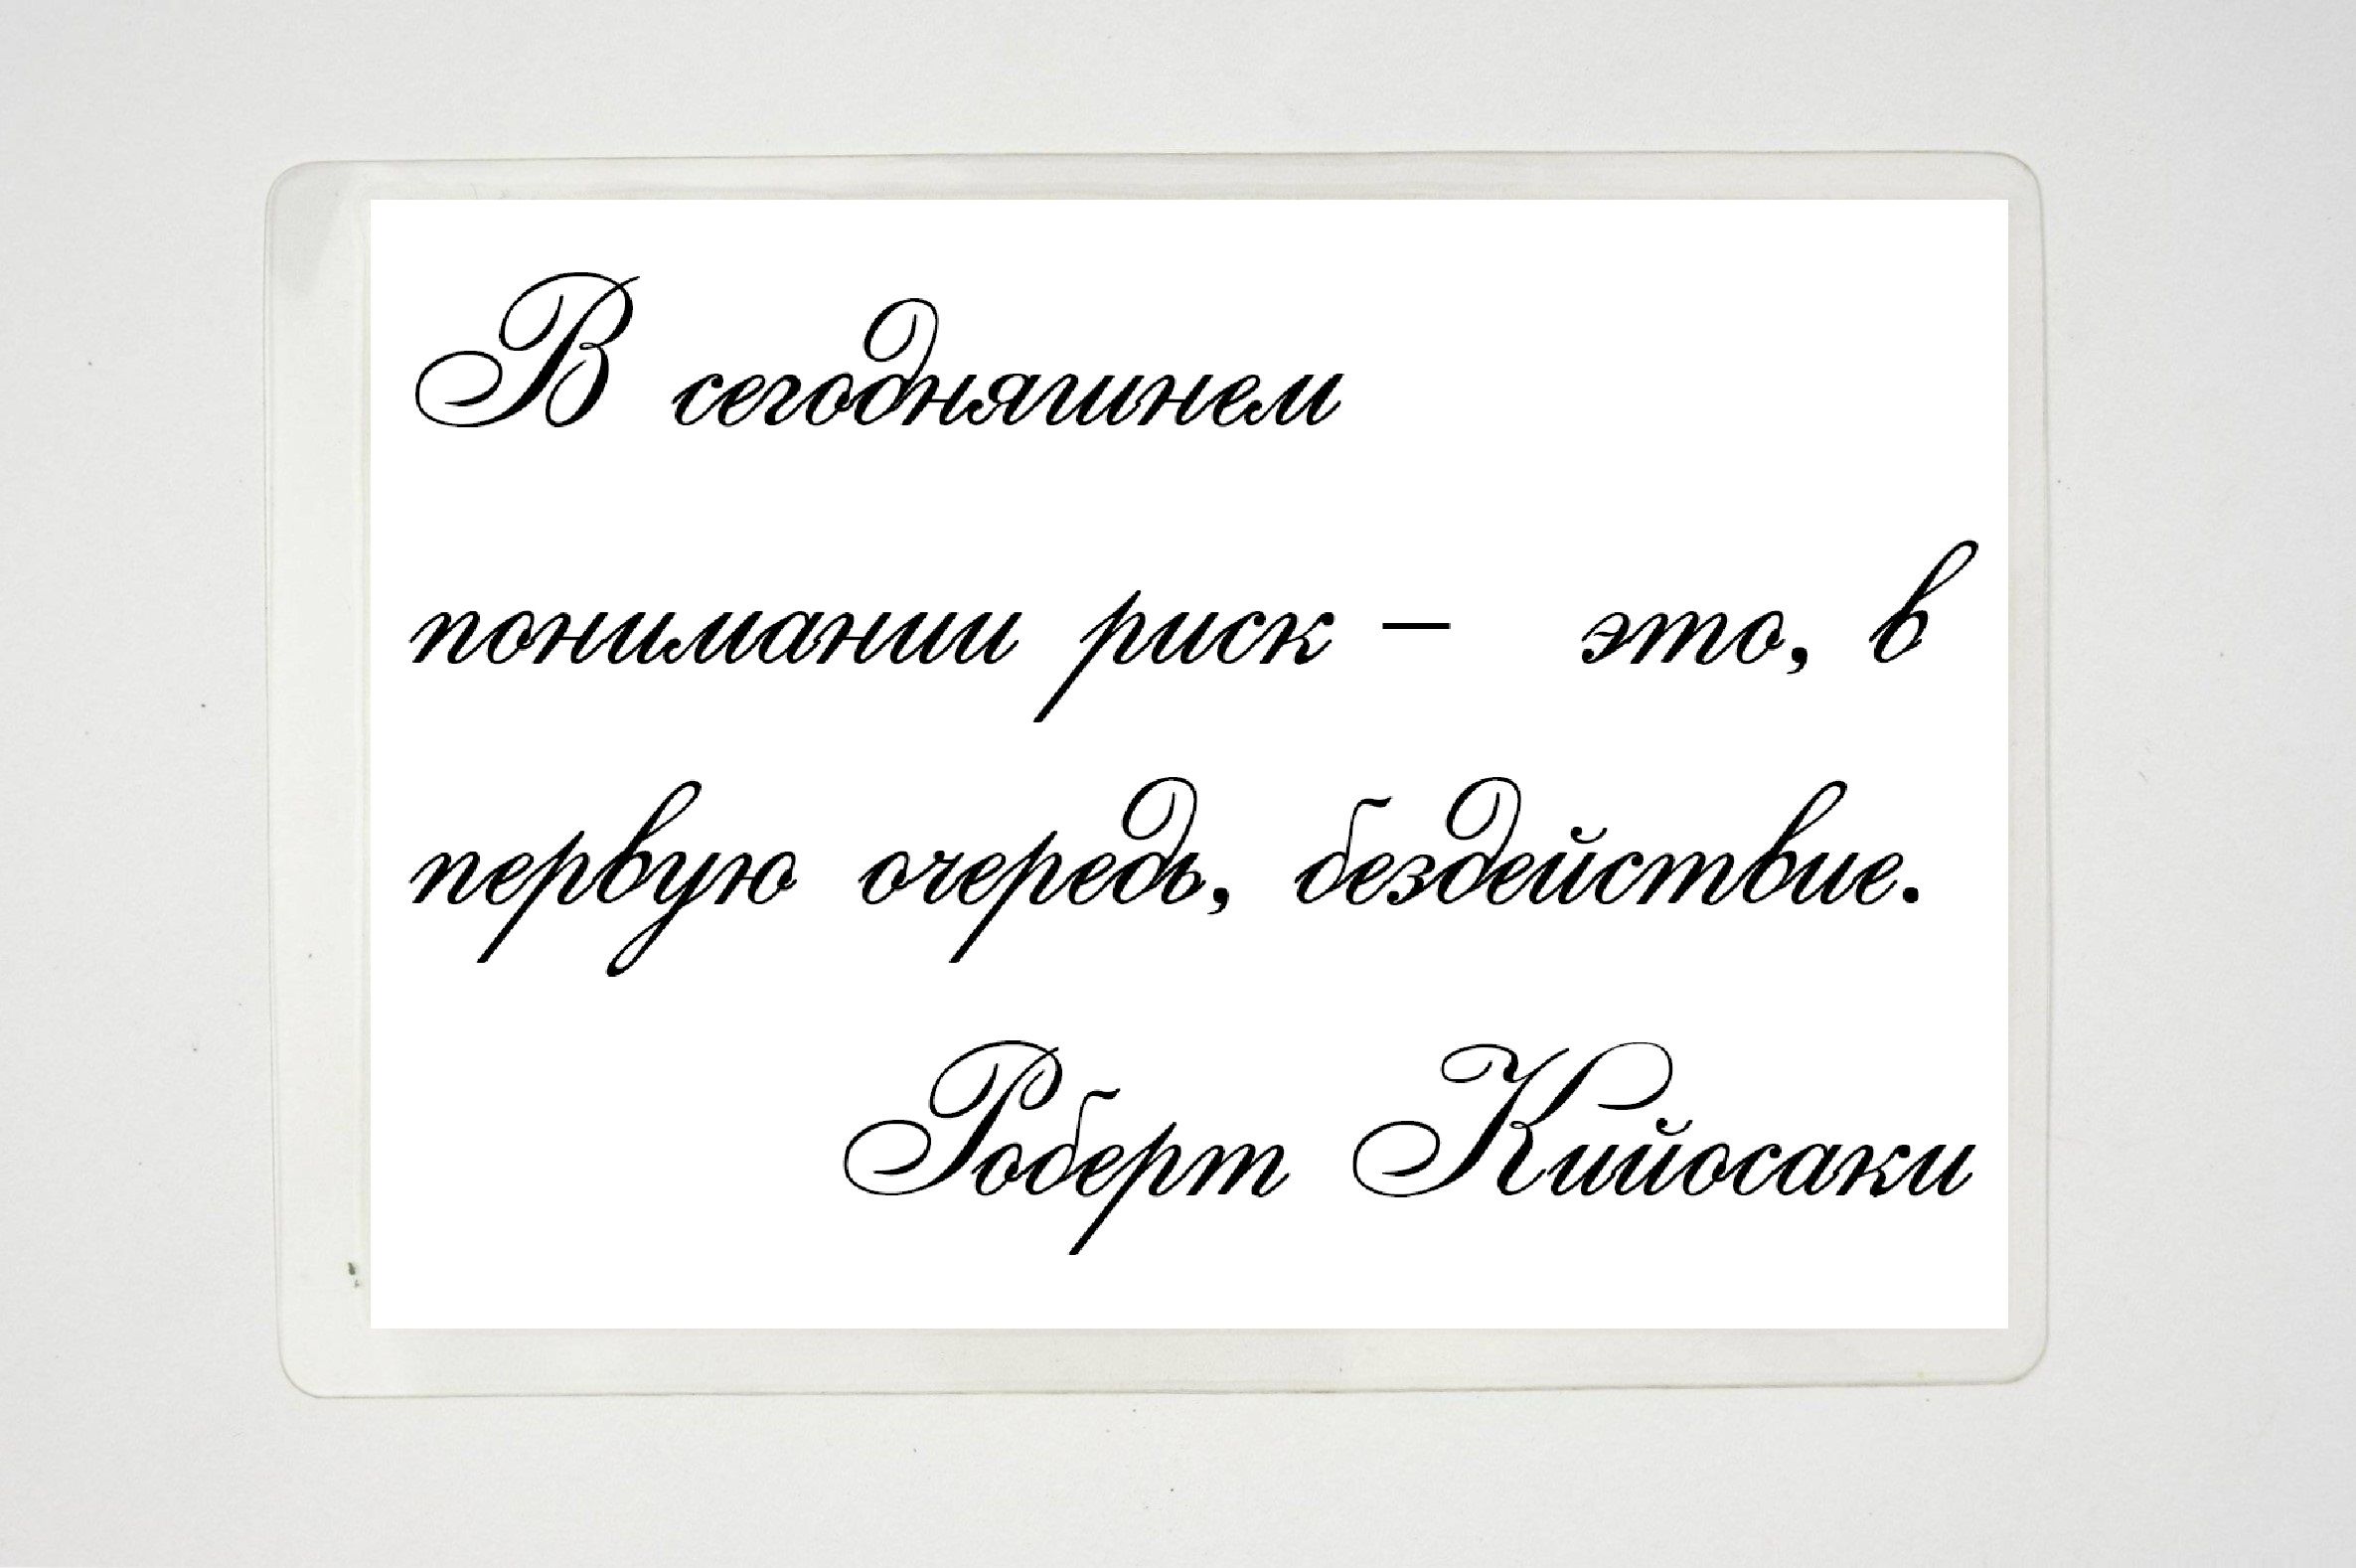 В сегодняшнем
понимании риск – это, в
первую очередь, бездействие.
Роберт Кийосаки